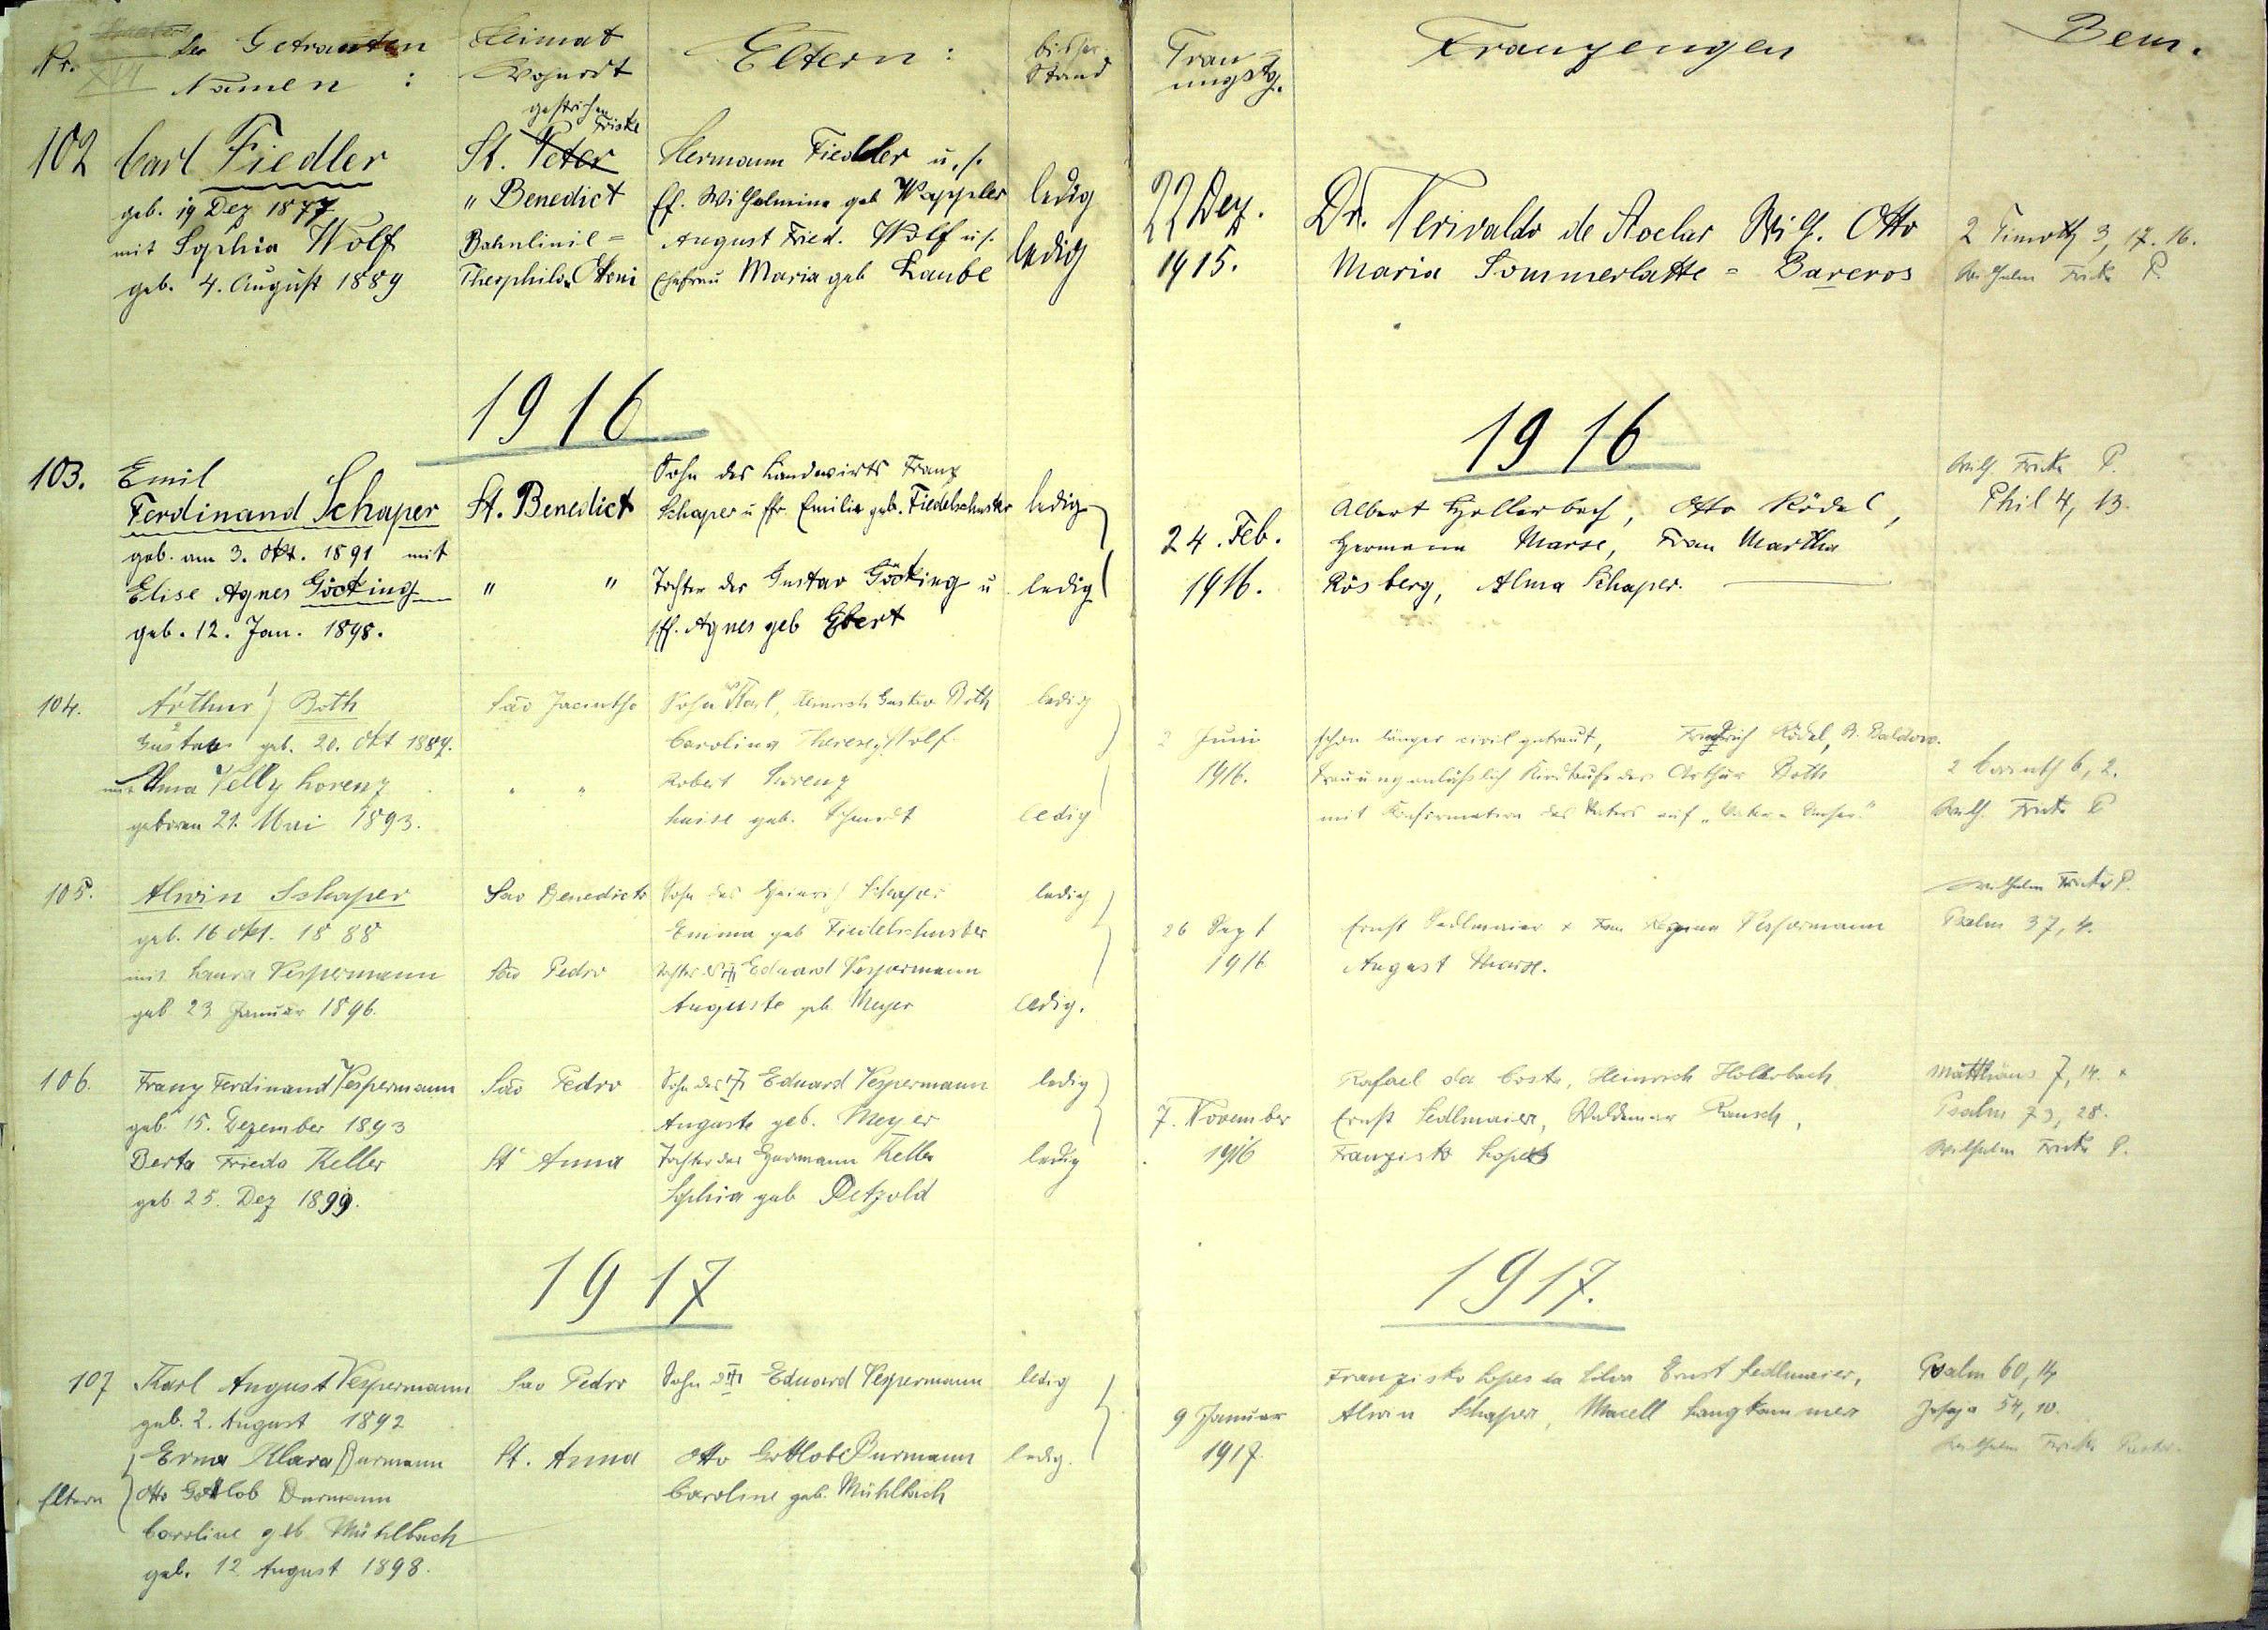 Nr. der Getrauten Namen :
Heimat Wohnort
Eltern :
bisher. Stand
Trau-ungstg.
Trauzeugen
Bem.
gestrichen Fricke
102 Carl Fiedler St. Peter Hermann Fiedler u. s.
geb. 19 Dez 1877 " Benedict Ef. Wilhelmine geb Wappler ledig
mit Sophia Wolf Bahnlinie = August Fried. Wolf u s. ledig
geb. 4. August 1889 Theophilo Ottoni Ehefrau Maria geb Laube
22 Dez. 1915.
Dr. Nerivaldo de Wilh. Otto
Maria Sommerlatte = Bareros
2 Timoth 3, 17. 16.
Wilhelm Fricke P.
1916
1916
103. Emil Sohn des Landwirts Franz
Ferdinand Schaper St. Benedict Schaper u Efr. Emilie geb. Fiedelschuster ledig
geb. am 3. Okt. 1891 mit
Elise Agnes Göcking " " Tochter des Gustav Göcking u ledig
geb. 12. Jan. 1898. Eff. Agnes geb Ebert
24. Feb. 1916.
Albert Hollerbach, Otto Rödel,
Hermann Marse, Frau Martha
Rösberg, Alma Schaper.
Wilh. Fricke P.
Phil 4, 13.
104. Arthur Both São Jacintho Sohn Karl, Heinrich Gustav Both ledig
Gustav geb. 20. Okt 1889. Carolina Therese Wolf
Alma Nelly Lorenz " " Robert Lorenz
geboren 21. Mai 1893. Luise geb. Schmidt ledig
2 Juni 1916.
schon länger civil getraut, Friedrich Rödel,
Trauung anläßlich Kindtaufe des Arthur Both
mit Konfirmation des Vaters auf „Vater-Unser"
2 Corinth 6, 2.
Wilh. Fricke P
105. Alwin Schaper Sao Benedicto Sohn des Heinrich Schaper ledig
geb. 16 Okt. 1888 Emma geb Fiedelschuster
mit Laura Vespermann São Pedro Tochter des Eduard Vespermann
geb 23 Januar 1896. Auguste geb. Meyer ledig.
26 Sept 1916
Ernst Sedlmaier + Frau Regina Vespermann
August Marse.
Wilhelm Fricke P.
Psalm 37, 4.
106. Franz Ferdinand Vespermann São Pedro Sohn des Eduard Vespermann ledig
geb. 15. Dezember 1893 Auguste geb. Meyer
Berta Frieda Keller St Anna Tochter des Hermann Keller ledig
geb 25. Dez 1899. Sophia geb Petzold
7. November 1916
Rafael da Costa, Heinrich Hollerbach
Ernst Sedlmaier, Waldemar Rausch,
Franzisko Lopes
Matthäus 7, 14. +
Psalm 73, 28.
Wilhelm Fricke P.
1917
1917.
107 Karl August Vespermann Sao Pedro Sohn des Eduard Vespermann ledig
geb. 2. August 1892
Erna Klara Durmann St. Anna Otto Gottlob Durmann ledig.
Eltern Otto Gottlob Durmann Caroline geb. Mühlbach
Caroline geb Mühlbach
geb. 12 August 1898.
9 Januar 1917.
Franzisko Lopes da Silva Ernst Sedlmaier,
Alwin Schaper, Macell Langkammer
Psalm 60, 14
Jesaja 54, 10.
Wilhelm Fricke Pastor.